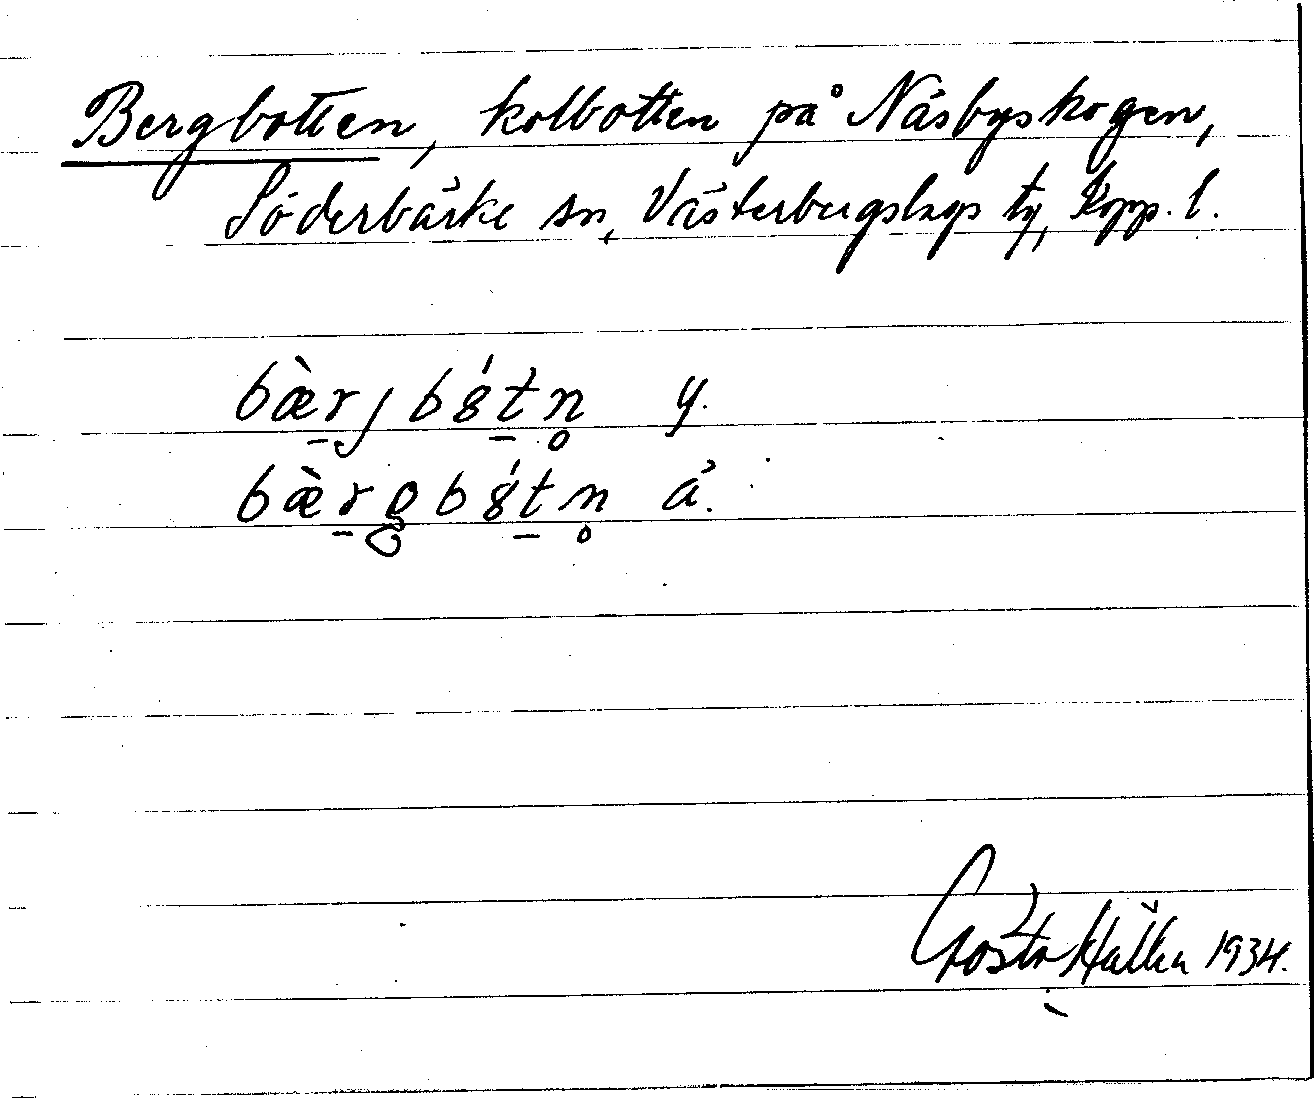 Bergbotten, kolbotten på Näsbyskogen,
Söderbärke sn, Västerbergslags ty, Kopp. l.
bæ̀r̠ȷb8́t̠n̥ y.
bæ̀r̠gb8́t̠n̥ ä.
Gösta 1934.